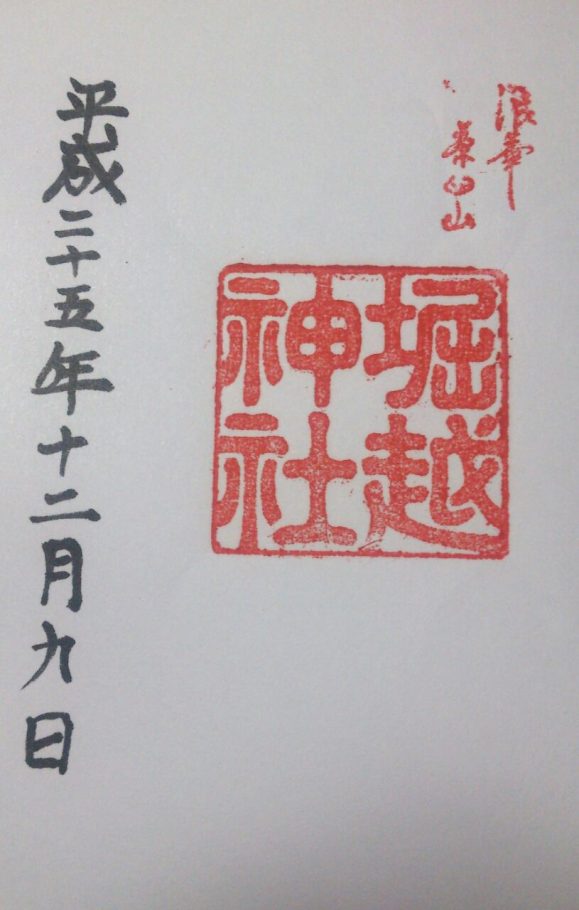 浪華
茶臼山
堀越
神社
平成二十五年十二月九日